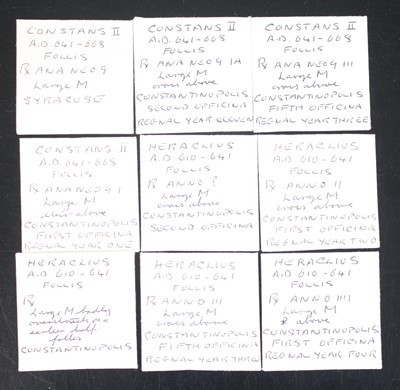 CONSTANS II
A.D. 641-668
FOLLIS
℞ ANA NEOS
Large M
SYRACUSE
CONSTANS II
A.D. 641-668
FOLLIS
℞ ANA NEOS IA
Large M
cross above
CONSTANTINOPOLIS
SECOND OFFICINA
REGNAL YEAR ELEVEN
CONSTANS II
A.D. 641-668
FOLLIS
℞ ANA NEOS III
Large M
cross above
CONSTANTINOPOLIS
FIFTH OFFICINA
REGNAL YEAR THREE
CONSTANS II
A.D. 641-668
FOLLIS
℞ ANA NEOS I
Large M
above
CONSTANTINOPOLIS
FIRST OFFICINA
REGNAL YEAR ONE
HERACLIUS
A.D 610-641
FOLLIS
℞ ANNO ?
Large M
cross above
CONSTANTINOPOLIS
SECOND OFFICINA
HERACLIUS
A.D 610-641
FOLLIS
℞ ANNO II
Large M
cross above
CONSTANTINOPOLIS
FIRST OFFICINA
REGNAL YEAR TWO
HERACLIUS
A.D. 610-641
FOLLIS
℞
Large M badly
overstruck on a
earlier half
follis
CONSTANTINOPOLIS
HERACLIUS
A.D 610-641
FOLLIS
℞ ANNO III
Large M
cross above
CONSTANTINOPOLIS
FIFTH OFFICINA
REGNAL YEAR THREE
HERACLIUS
A.D 610-641
FOLLIS
℞ ANNO IIII
Large M
above
CONSTANTINOPOLIS
FIRST OFFICINA
REGNAL YEAR FOUR